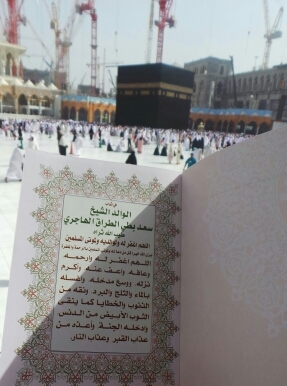 الوالد الشيخ
سعد بطي الطراق الهاجري
طيب الله ثراه
اللهم اغفر له ولوالديه وموتى المسلمين
اللهم اغفر له وارحمه
وعافه واعف عنه وأكرم
نزله ووسع مدخله واغسله
بالماء والثلج والبرد ونقه من
الذنوب والخطايا كما ينقى
الثوب الأبيض من الدنس
وادخله الجنة وأعذه من
عذاب القبر وعذاب النار